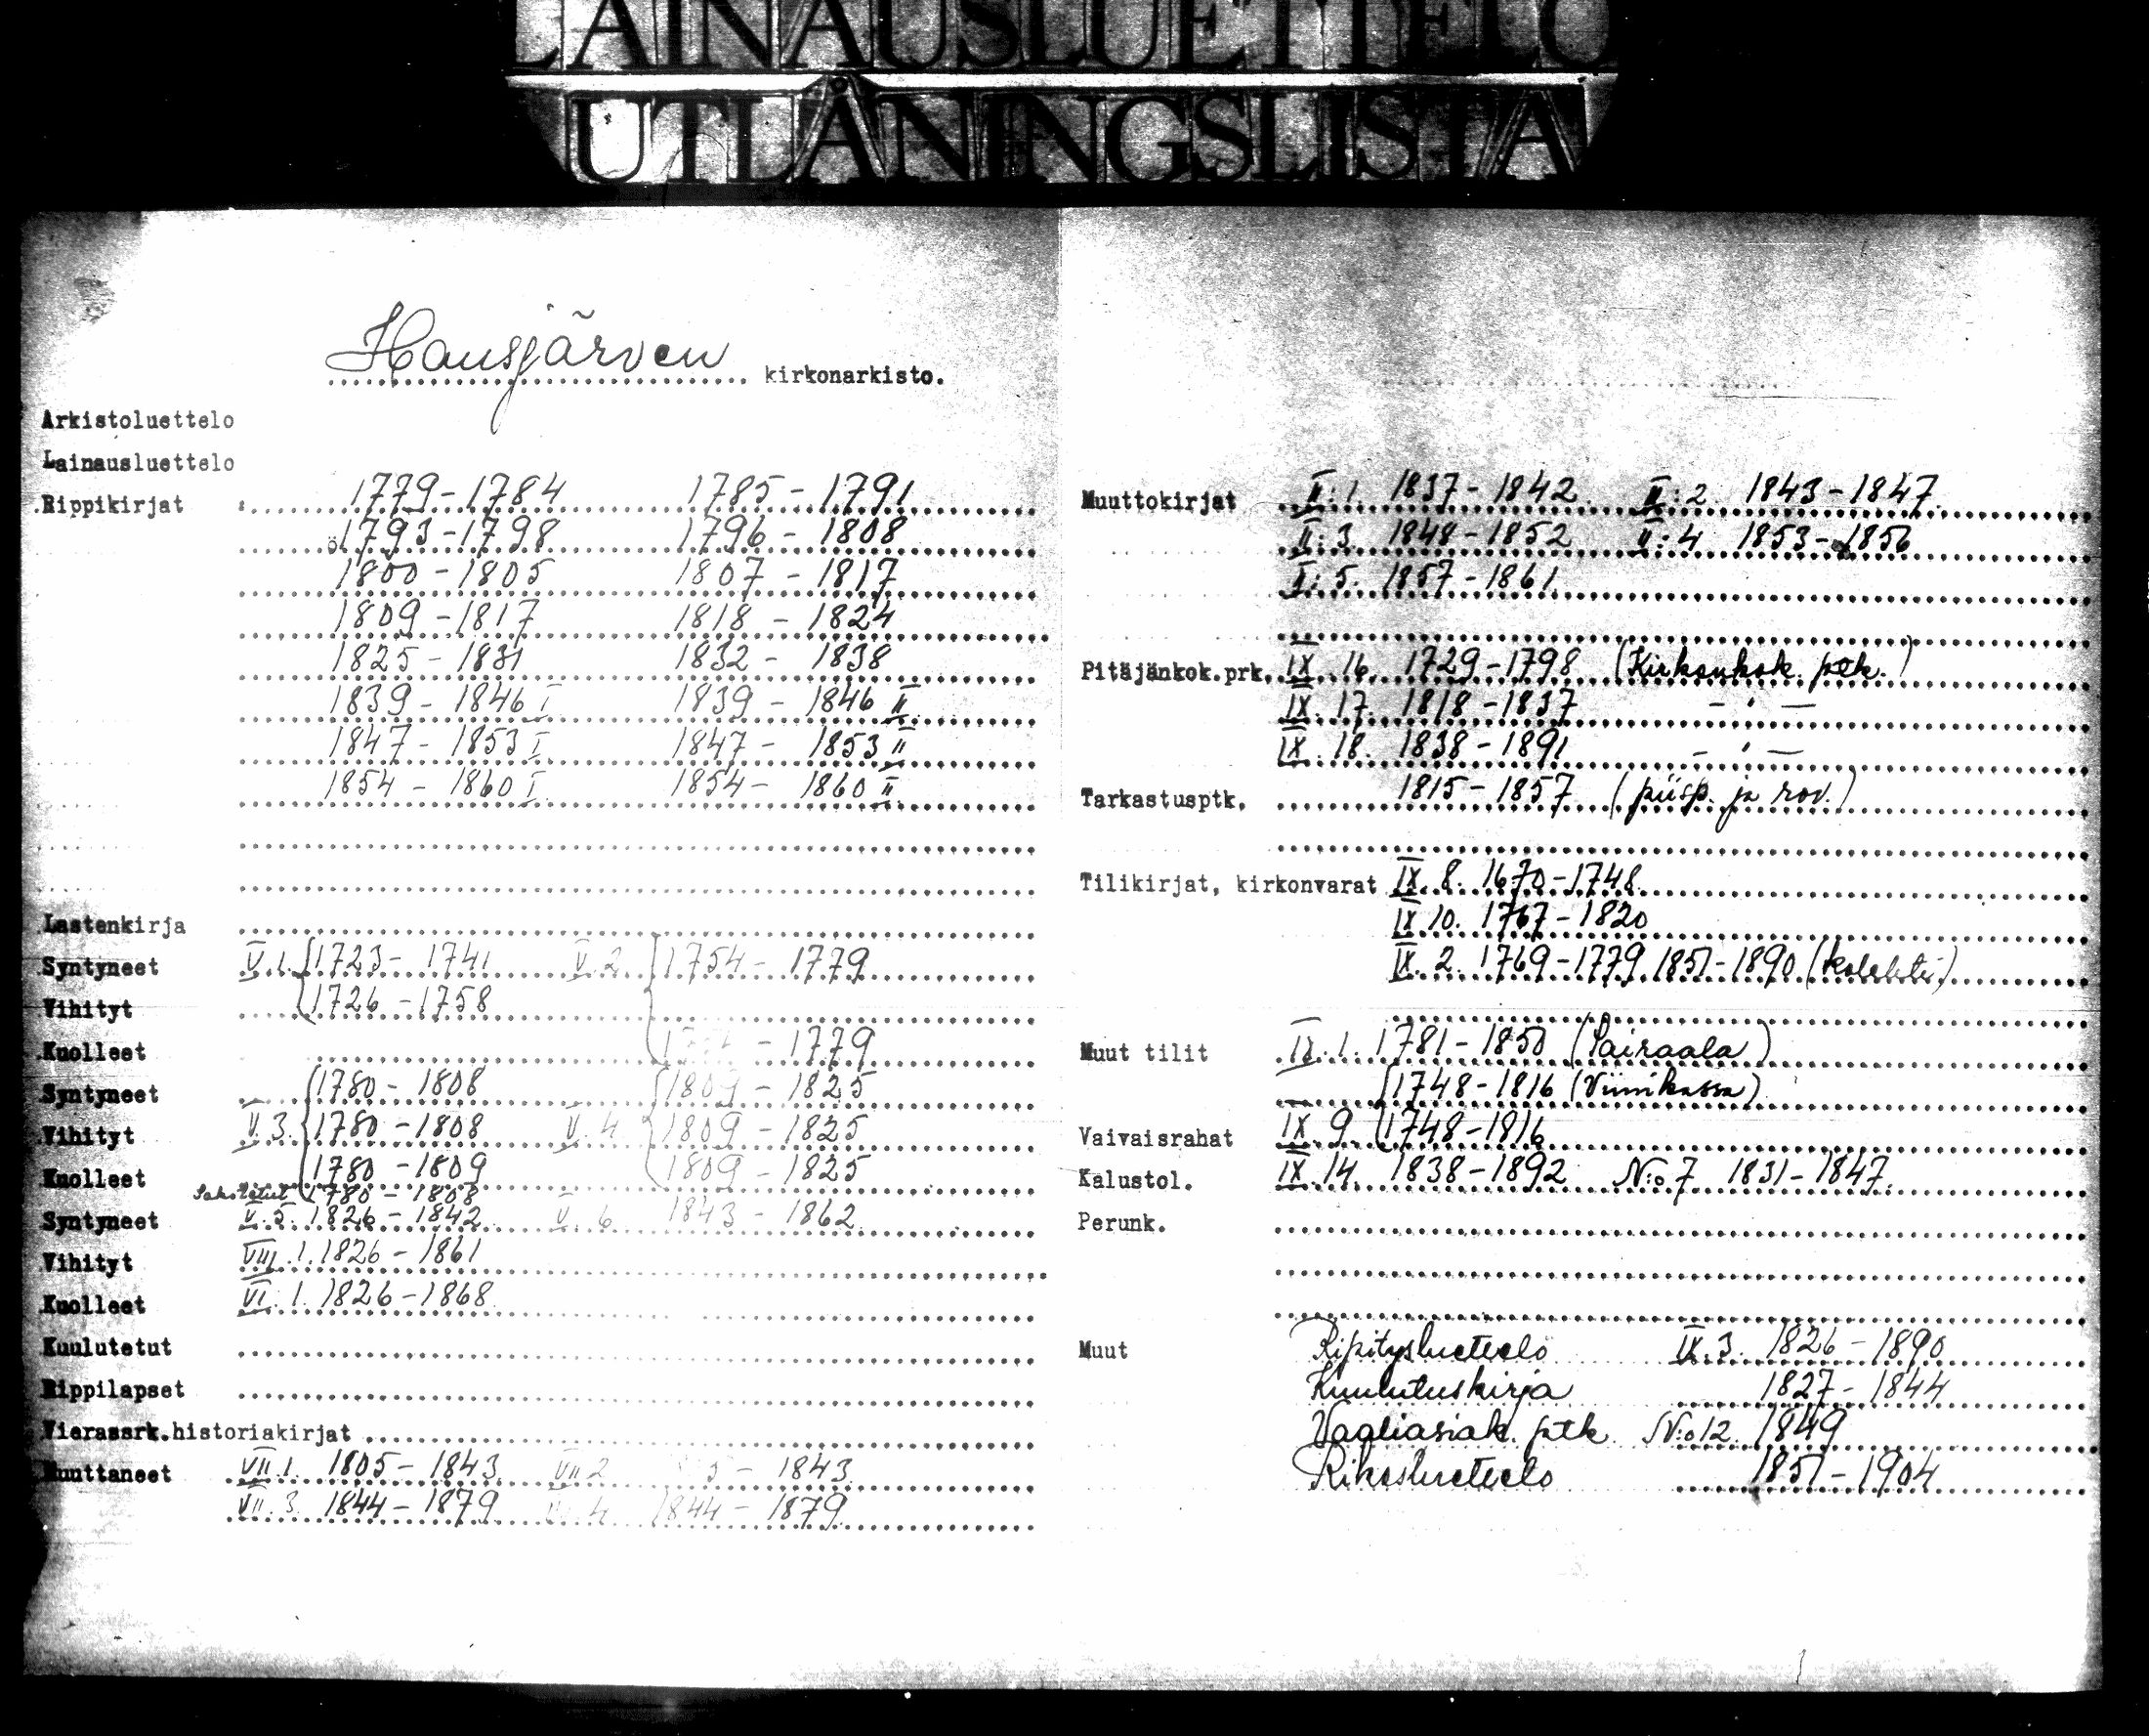 LAINAUSLUETTELO
UTLÅNINGSLISTA
Hausjärven kirkonarkisto.
Arkistoluettelo
Lainausluettelo
Rippikirjat 1779-1784 1785-1791
1793-1798 1796-1808
1800-1805 1807-1817
1809-1817 1818-1824
1825-1831 1832-1838
1839-1846 I 1839-1846 II
1847-1853 I 1847-1853 II
1854-1860 I 1854-1860 II
Lastenkirja
Syntyneet V.1. 1723-1741 V.2. 1754-1779
Vihityt 1726-1758
Kuolleet -1779
Syntyneet 1780-1808 1809-1825
Vihityt V.3. 1780-1808 V.4 1809-1825
Kuolleet 1780-1809 1809-1825
1780-1808
Syntyneet V.5. 1826-1842 V.6 1843-1862
Vihityt VIII.1. 1826-1861
Kuolleet VI.1. 1826-1868
Kuulutetut
Rippilapset
Vierassrk.historiakirjat
Muuttaneet VII.1. 1805-1843 VII.2 -1843
VII.3. 1844-1879 4 1844-1879
Muuttokirjat II:1. 1837-1842 II:2. 1843-1847
II:3. 1848-1852 II:4 1853-1856
II:5. 1857-1861
Pitäjänkok.prk. IX.16. 1729-1798 (Kirkonkok. ptk.)
IX.17. 1818-1837 -"-
IX.18. 1838-1891 -"-
Tarkastusptk. 1815-1857 (piisp. ja rov.)
Tilikirjat, kirkonvarat IX.8. 1670-1748
IX.10. 1767-1820
IX.2. 1769-1779, 1851-1890 (kolehti)
Muut tilit IX.1. 1781-1850 (Sairaala)
1748-1816 (Viinikassa)
Vaivaisrahat IX.9. 1748-1816
Kalustol. IX.14. 1838-1892 N:o 7 1831-1847
Perunk.
Muut Ripitysluettelo IX.3. 1826-1890
Kuulutuskirja 1827-1844
Vaaliasiak. ptk. N:o 12. 1849
Rikosluettelo 1851-1904